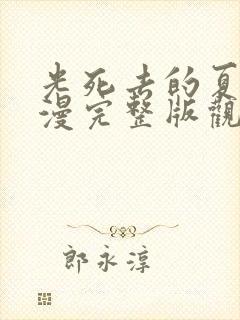 光死去的夏
漫完整版觀
郎永淳